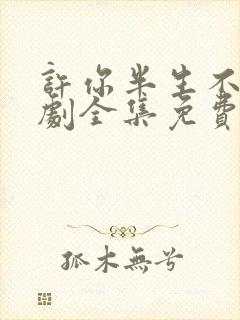 許你半生不
劇全集免費
孤木無兮